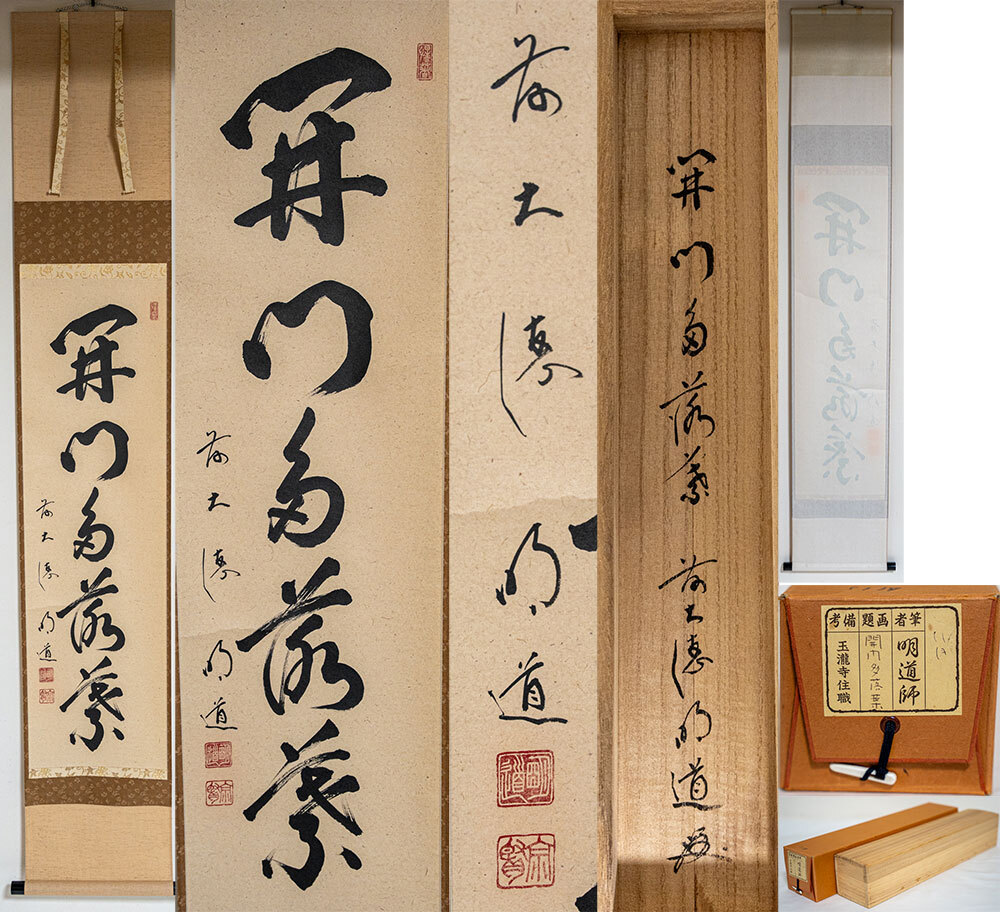 開門多落葉
前大徳 明道
開門多落葉
前大徳 明道
前大徳 明道
明道
宗賢
開門多落葉 前大徳 明道
筆者
画題
備考
明道師
開門多落葉
玉瀧寺住職